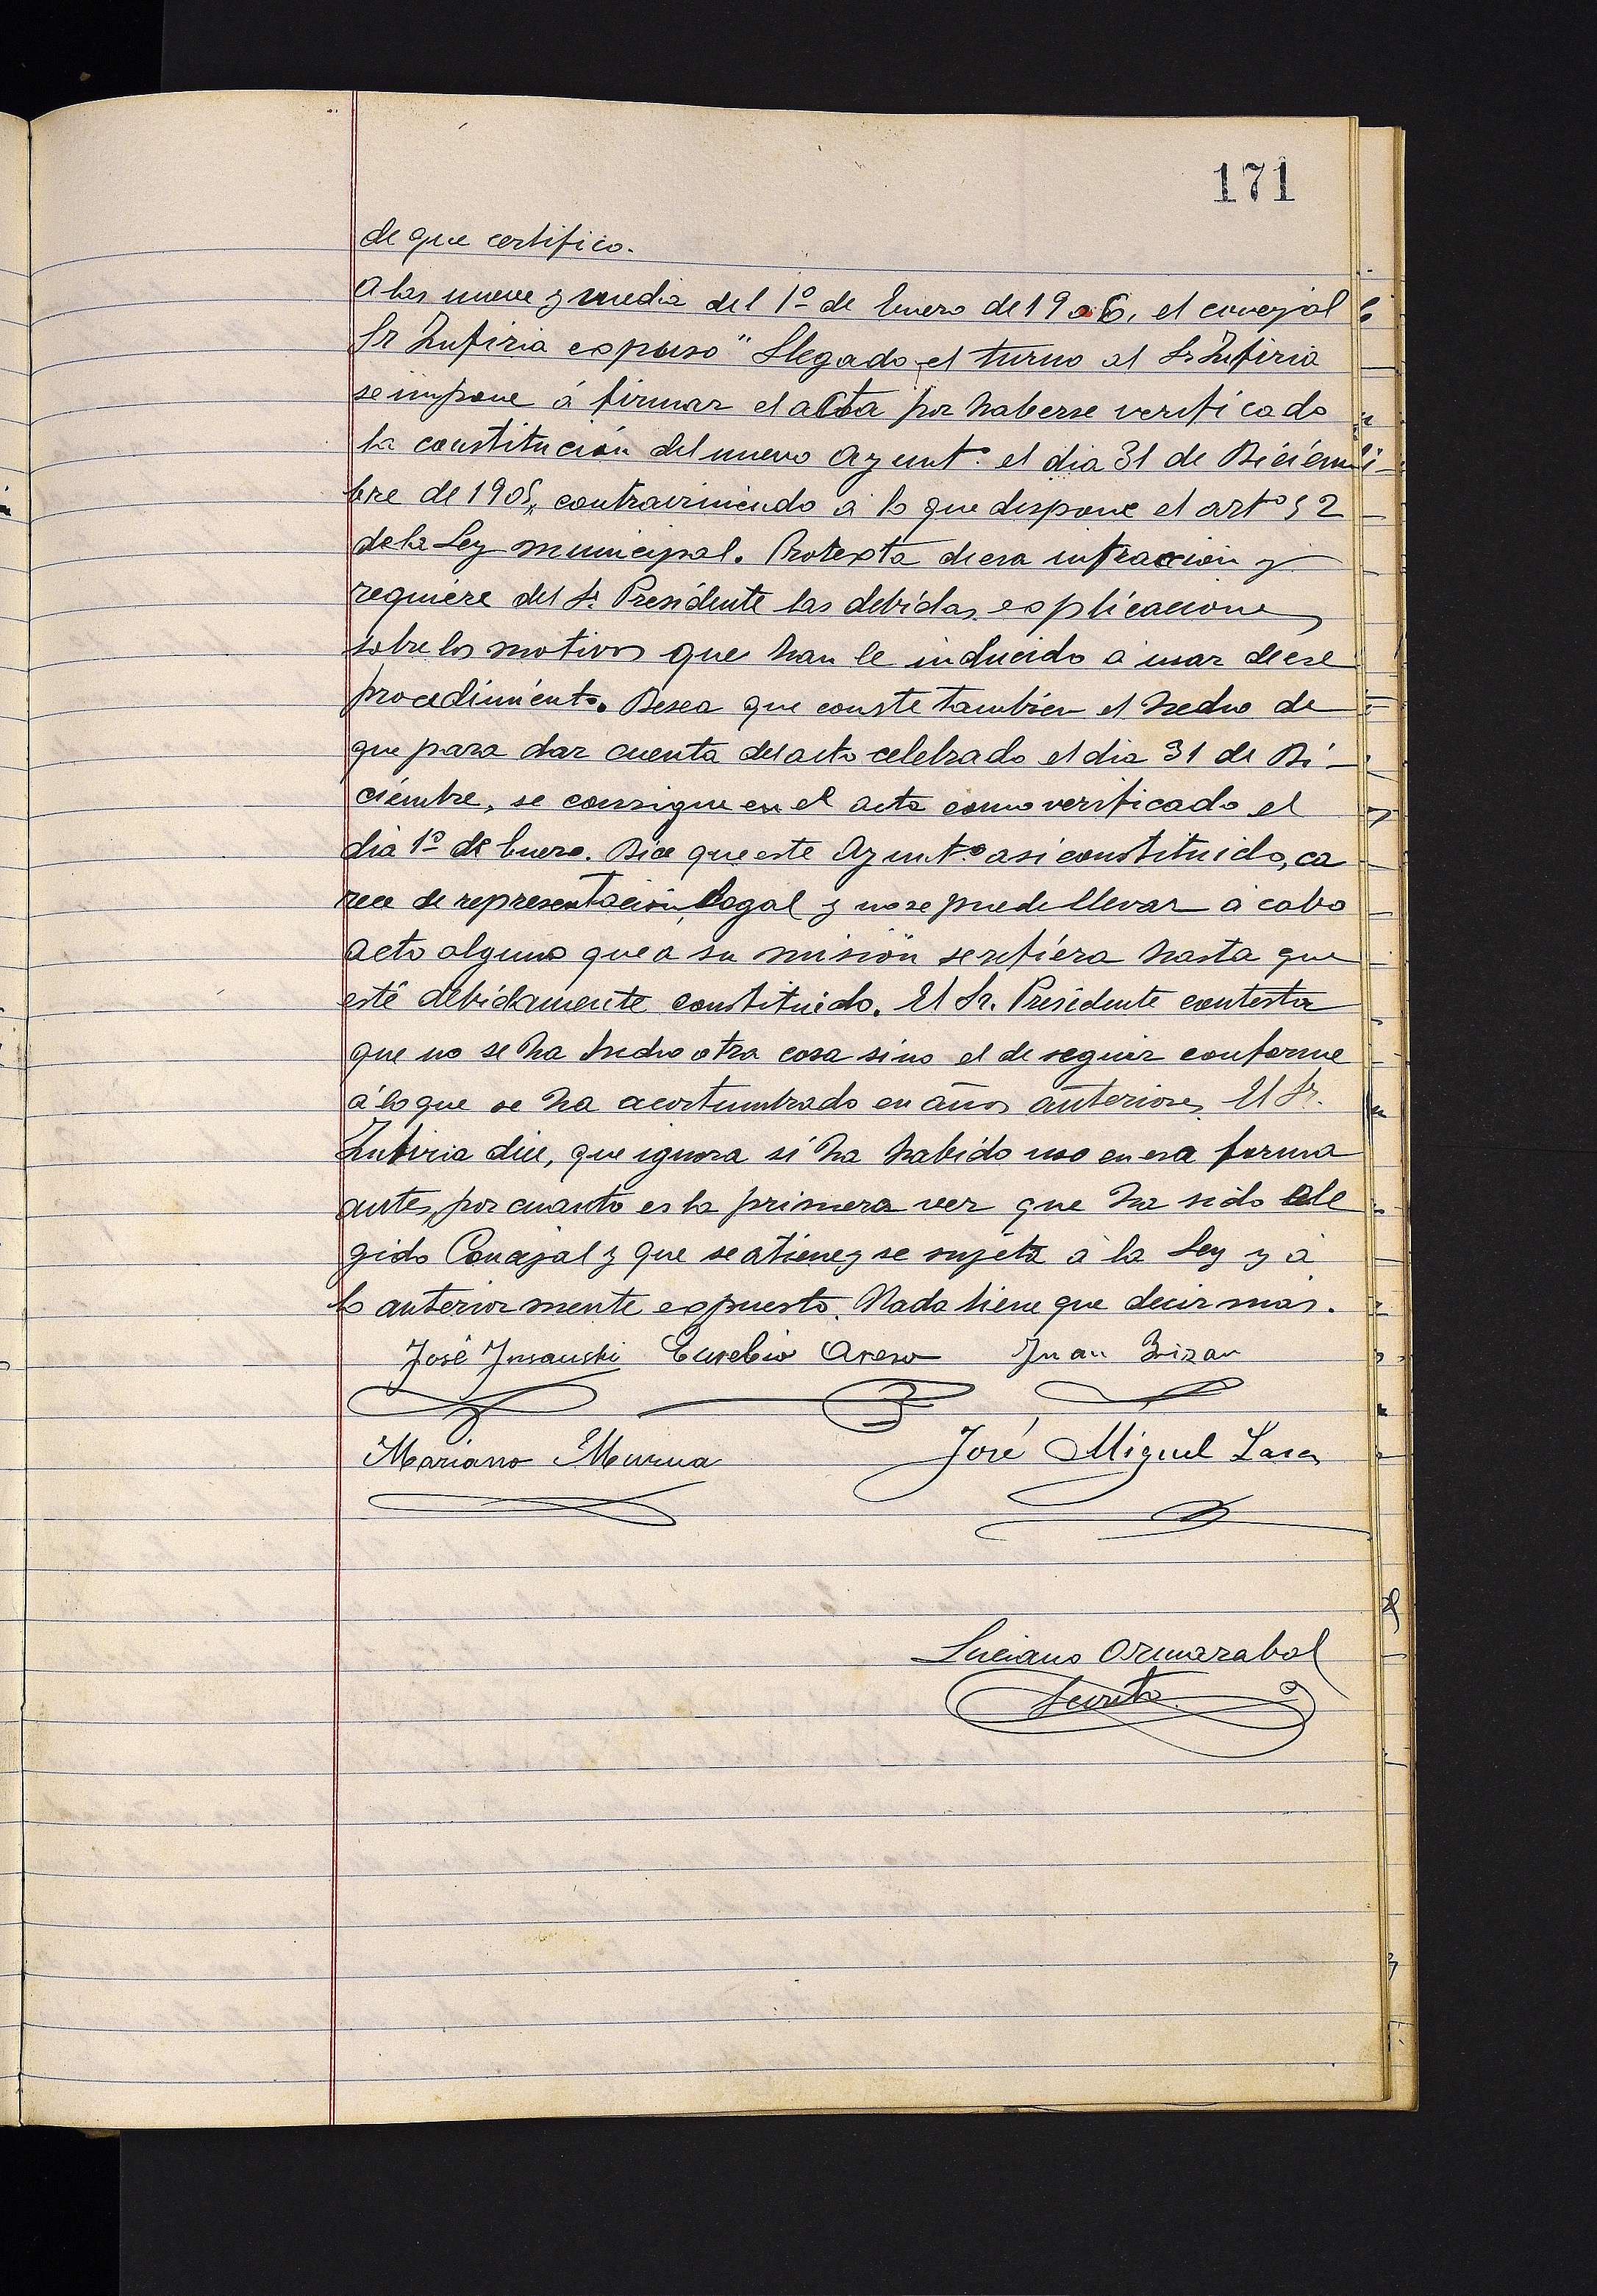 171
de que certifico.
A las nueve y media del 1º de Enero de 1906, el concejal
Sr Zufiria expuso "Llegado el turno al Sr Zufiria
se impone á firmar el acta por haberse verificado
la constitución del nuevo Ayuntº el dia 31 de Diciém-
bre de 1905, contraviniendo á lo que dispone el artº 52
de la Ley municipal. Protexta de esa infracción y
requiere del Sr. Presidente las debidas explicaciones
sobre los motivos que han le inducido a usar de ese
procedimiento. Desea que conste tambien el hecho de
que para dar cuenta del acto celebrado el dia 31 de Di-
ciembre, se consigue en el acta como verificado el
dia 1º de Enero. Dice que este Ayuntº asi constituido, ca
rece de representación legal y no se puede llevar á cabo
acto alguno que á su misión se refiera hasta que
esté debidamente constituido. El Sr. Presidente contesta
que no se ha hecho otra cosa sino el de seguir conforme
á lo que se ha acostumbrado en años anteriores. El Sr.
Zufiria dice, que ignora si ha habido uso en esa forma
antes, por cuanto es la primera vez que ha sido ele
gido Concejal y que se atiene y se sujeta á la Ley y á
lo anteriormente expuesto. Nada tiene que decir mas.
José Insausti Eusebio Areso Juan
Mariano Murua José Miguel Lasa
Luciano Ormazabal
Secretº